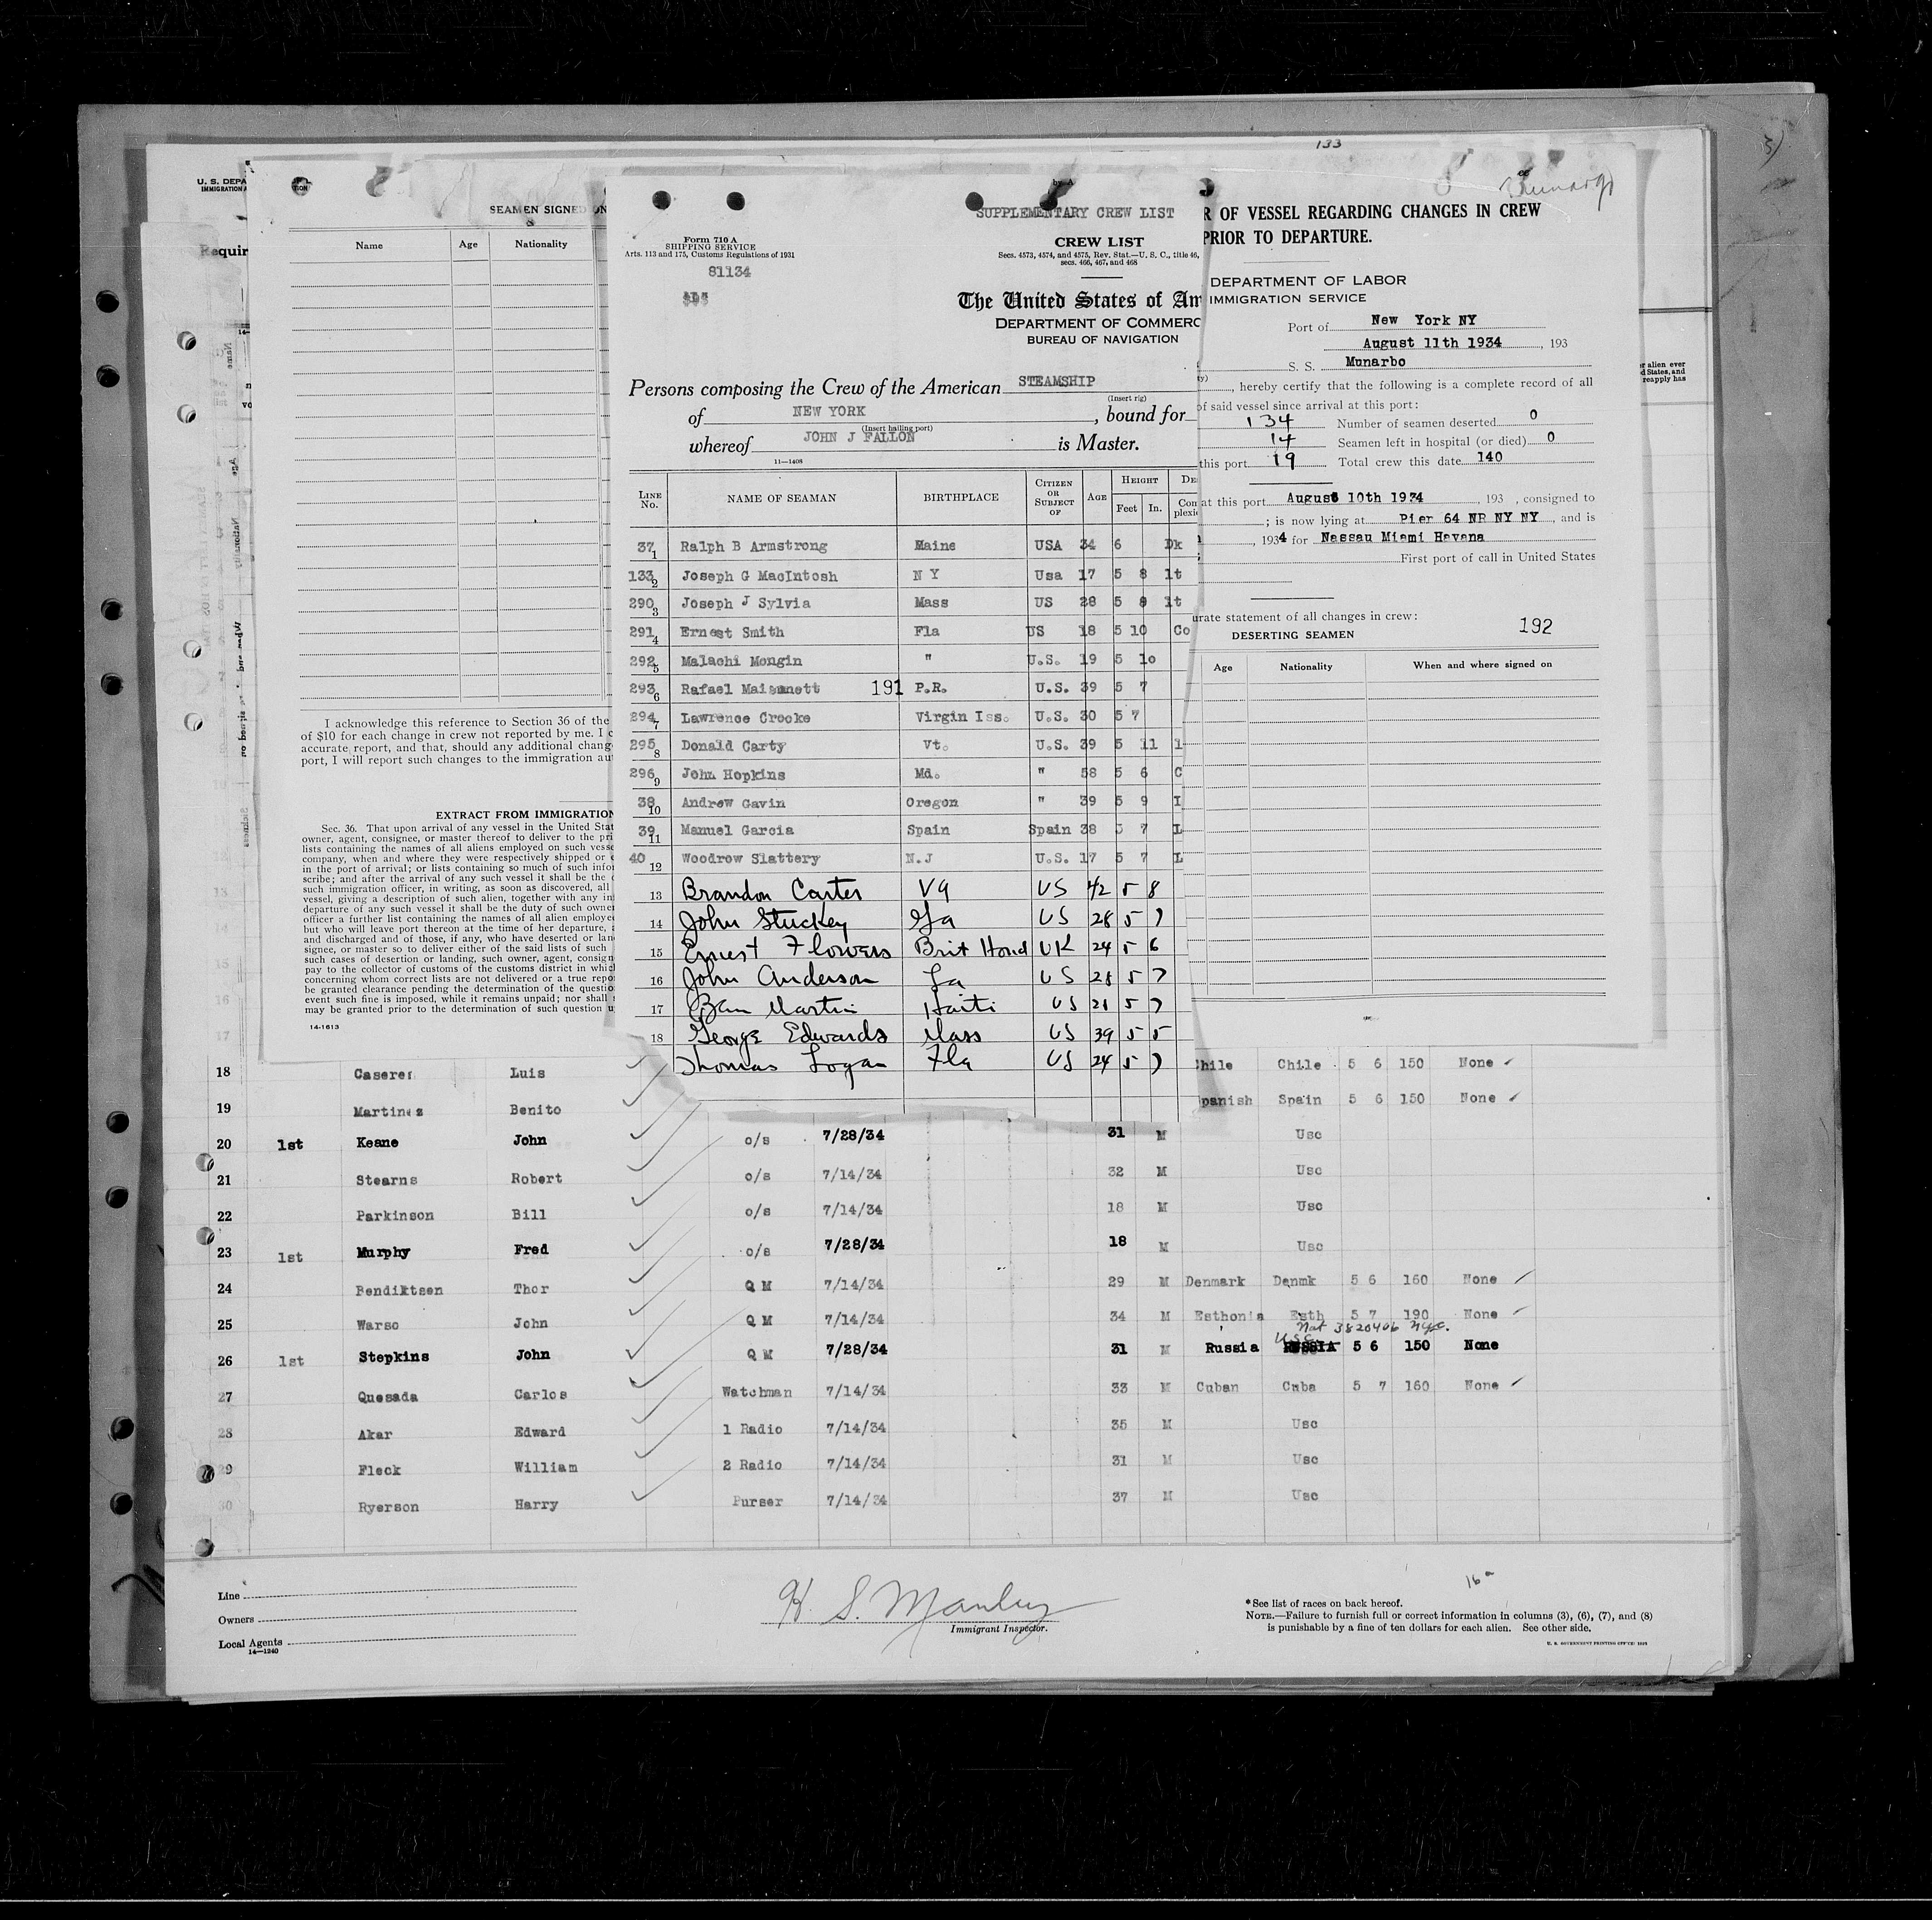 133
Munargo
U. S. DEPA
IMMIGRATION A
Requir
SEAMEN SIGNED ON
Name Age Nationality
I acknowledge this reference to Section 36 of the
of $10 for each change in crew not reported by me. I
accurate report, and that, should any additional chang
port, I will report such changes to the immigration au
EXTRACT FROM IMMIGRATION
Sec. 36. That upon arrival of any vessel in the United Stat
owner, agent, consignee, or master thereof to deliver to the pri
lists containing the names of all aliens employed on such vess
company, when and where they were respectively shipped or
in the port of arrival; or lists containing so much of such infor
scribe; and after the arrival of any such vessel it shall be the
such immigration officer, in writing, as soon as discovered, all
vessel, giving a description of such alien, together with any in
departure of any such vessel it shall be the duty of such owne
officer a further list containing the names of all alien employe
but who will leave port thereon at the time of her departure,
and discharged and of those, if any, who have deserted or lan
signee, or master so to deliver either of the said lists of such
such cases of desertion or landing, such owner, agent, consign
pay to the collector of customs of the customs district in whic
concerning whom correct lists are not delivered or a true repo
be granted clearance pending the determination of the questio
event such fine is imposed, while it remains unpaid; nor shall
may be granted prior to the determination of such question u
14-1613
SUPPLEMENTARY CREW LIST
Form 710 A
SHIPPING SERVICE
Arts. 113 and 175, Customs Regulations of 1931
81134
CREW LIST
Secs. 4573, 4574, and 4575, Rev. Stat.—U. S. C., title 46,
secs. 466, 467, and 468
The United States of Am
DEPARTMENT OF COMMERC
BUREAU OF NAVIGATION
Persons composing the Crew of the American STEAMSHIP
(Insert rig)
of NEW YORK, bound for
(Insert hailing port)
whereof JOHN J FALLON is Master.
11—1408
LINE No. NAME OF SEAMAN BIRTHPLACE CITIZEN OR SUBJECT OF AGE HEIGHT Feet In. Com plexi
37 1 Ralph B Armstrong Maine USA 34 6 Dk
133 2 Joseph G MacIntosh N Y Usa 17 5 8 lt
290 3 Joseph J Sylvia Mass US 28 5 8 lt
291 4 Ernest Smith Fla US 18 5 10 Co
292 5 Malachi Mongin " U.S. 19 5 10
293 6 Rafael Maisnnett 191 P.R. U.S. 39 5 7
294 7 Lawrence Crooke Virgin Iss. U.S. 30 5 7
295 8 Donald Carty Vt. U.S. 39 5 11 l
296 9 John Hopkins Md. " 58 5 6 C
38 10 Andrew Gavin Oregon " 39 5 9
39 11 Manuel Garcia Spain Spain 38 5 7 L
40 12 Woodrow Slattery N.J U.S. 17 5 7 L
13 Brandon Carter Va US 42 5 8
14 John Stuckey Ga US 28 5 7
15 Ernest Flowers Brit Hond UK 24 5 6
16 John Anderson La US 28 5 7
17 Ban Martin Haiti US 21 5 7
18 George Edwards Mass US 39 5 5
Thomas Logan Fla US 24 5 7
R OF VESSEL REGARDING CHANGES IN CREW
PRIOR TO DEPARTURE.
DEPARTMENT OF LABOR
IMMIGRATION SERVICE
Port of New York NY
August 11th 1934, 193
S. S. Munarbo
, hereby certify that the following is a complete record of all
of said vessel since arrival at this port:
134 Number of seamen deserted 0
14 Seamen left in hospital (or died) 0
this port 19 Total crew this date 140
at this port August 10th 1934, 193 , consigned to
; is now lying at Pier 64 NR NY NY, and is
, 1934 for Nassau Miami Havana
First port of call in United States
urate statement of all changes in crew:
DESERTING SEAMEN 192
Age Nationality When and where signed on
r alien ever
d States, and
reapply has
18 Caserer Luis Chile Chile 5 6 150 None
19 Martinez Benito Spanish Spain 5 6 150 None
20 1st Keane John o/s 7/28/34 31 M Usc
21 Stearns Robert o/s 7/14/34 32 M Usc
22 Parkinson Bill o/s 7/14/34 18 M Usc
23 1st Murphy Fred o/s 7/28/34 18 M Usc
24 Bendiktsen Thor Q M 7/14/34 29 M Denmark Denmk 5 6 160 None
25 Warso John Q M 7/14/34 34 M Esthonia Esth 5 7 190 None
Nat 3820406 NYC.
USC
26 1st Stepkins John Q M 7/28/34 31 M Russia RUSSIA 5 6 150 None
27 Quesada Carlos Watchman 7/14/34 33 M Cuban Cuba 5 7 160 None
28 Akar Edward 1 Radio 7/14/34 35 M Usc
29 Fleck William 2 Radio 7/14/34 31 M Usc
30 Ryerson Harry Purser 7/14/34 37 M Usc
Line
Owners
Local Agents
14—1240
H. S. Manley
Immigrant Inspector.
16a
*See list of races on back hereof.
NOTE.—Failure to furnish full or correct information in columns (3), (6), (7), and (8)
is punishable by a fine of ten dollars for each alien. See other side.
U. S. GOVERNMENT PRINTING OFFICE